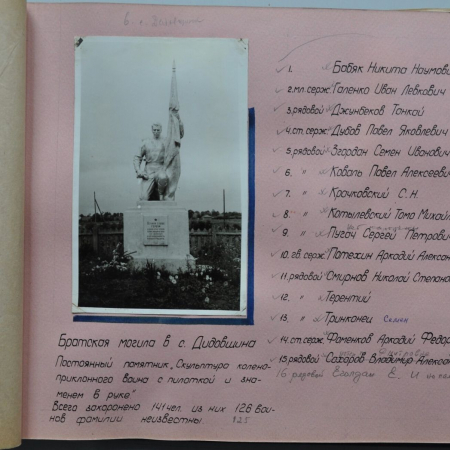 1. Бабяк Никита Наумов
2. мл.серж. Галенко Иван Левкович
3. рядовой Джунбеков Танкой
4. ст.серж. Дубов Павел Яковлевич
5. рядовой Згордан Семен Иванович
6. Коваль Павел Алексееви
7. Крачковский С.Н.
8. Котылевский Тома Михайл
9. Пугач Сергей Петрович
10. гв.серж. Потехин Аркадий Алексан
11. рядовой Смирнов Николай Степано
12. Терентий
13. Тринконец
14. ст.серж. Фоменков Аркадий Федор
15. рядовой Сахаров Владимир Алексан
16 рядовой
Братская могила в с. Дидовщина
Постоянный памятник „Скульптура колено-
приклонного воина с пилоткой и зна-
менем в руке."
Всего захоронено 141 чел. из них 126 вои-
нов фамилии неизвестны. 125